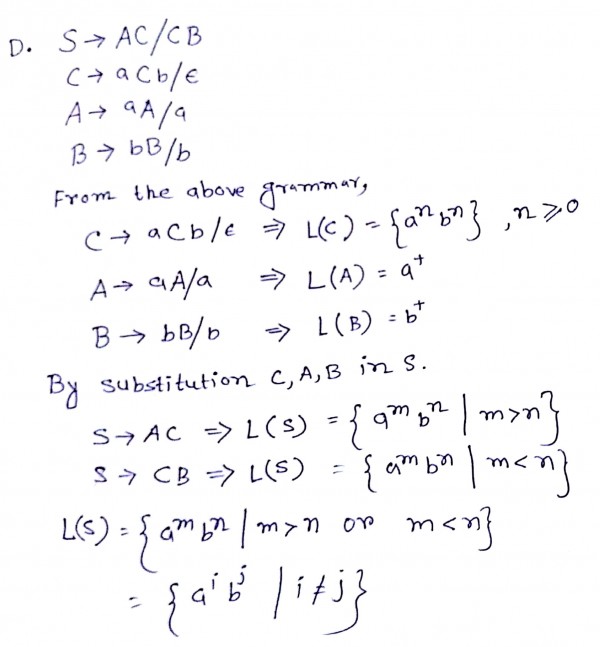 D. S → AC/CB
C → aCb/ϵ
A → aA/a
B → bB/b
From the above grammar,
C → aCb/ϵ ⇒ L(C) = {aⁿbⁿ}, n ≥ 0
A → aA/a ⇒ L(A) = a⁺
B → bB/b ⇒ L(B) = b⁺
By substitution C, A, B in S.
S → AC ⇒ L(S) = {aᵐbⁿ | m>n}
S → CB ⇒ L(S) = {aᵐbⁿ | m<n}
L(S) = {aᵐbⁿ | m>n or m<n}
= {aⁱbʲ | i≠j}